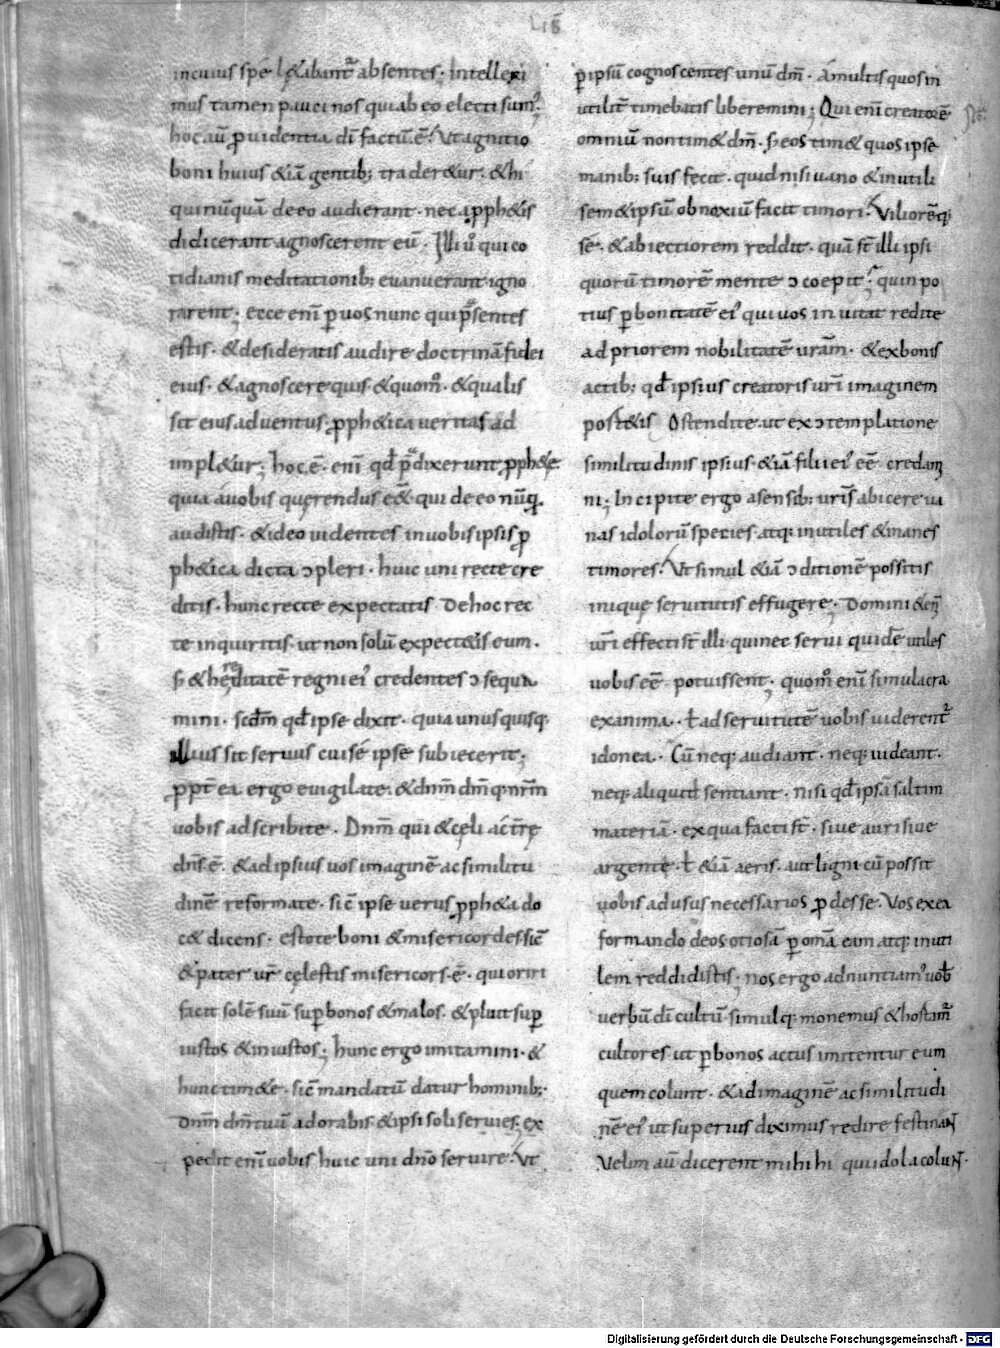 LIB
incuius spē l&abant᷑ absentes· Intellexi
mus tamen pauci nos qui ab eo electi sum᷒·
hoc aū ꝓuidentia dī factū·ē· Ut agnitio
boni huius &iā gentib; trader&ur· &hi
qui nūquā de eo audierant· nec a pph&is
didicerant agnoscerent eū· Illi u̇ qui co
tidianis meditationib; euanuerant igno
rarent; ecce enī ꝑ uos nunc qui p̄sentes
estis· &desideratis audire doctrinā fidei
eius· &agnoscere quis &quom̊· &qualis
sit eius aduentus· ꝓph&ica ueritas ad
impl&ur; hoc·ē· enī qđ p̄dixerunt ꝓph&ę
quia áuobis querendus eēt qui de eo nūq̄
audistis· &ideo uidentes in uobis ipsis ꝓ
ph&ica dicta ɔpleri· huic uni recte cre
ditis· hunc recte expectatis De hoc rec
te inquiritis· ut non solū expect&is eum·
s; &hereditatē regni ei᷒ credentes ɔsequa
mini· scđm qđ ipse dixit· quia unus quisq;
illius sit seruus cui sé ipse subiecerit;
ꝓpt̄ ea ergo euigilate· &dnm̄ dm̄q· nr̄m
uobis adscribite· Dnm̄ qui &cęli ac t̄rę
dn̄s·ē· &ad ipsius uos imaginē ac similitu
dinē reformate· sic̄ ipse uerus ꝓph&a do
c& dicens· estote boni &misericordes sic̄
&pater ur̄ cęlestis misericors·ē· qui oriri
facit solē suū suꝑ bonos &malos· &pluit suꝑ
iustos &iniustos; hunc ergo imitamini· &
hunc tim&e· sic̄ mandatū datur hominib;·
Dnm̄ dm̄ tuū adorabis &ipsi soli seruies· ex
pedit enī uobis huic uni dn̄o seruire· Ut
ꝑ ipsū cognoscentes unū dm̄· ámultis quos in
utilit̄ timebatis liberemini; Qui enī creatorē
omniū non tim& dm̄· s; eos tim& quos ipse
manib; suis fecit· quid nisi uano &inutili
sem&ipsū obnoxiū facit timori· Viliorēq;
sé· &abiectiorem reddit· quā st̄ illi ipsi
quorū timorē mente ɔcoepit; quin po
tius ꝑ bonitatē ei᷒ qui uos inuitat redite
ad priorem nobilitatē uram̄· &ex bonis
actib; qđ ipsius creatoris uri̅ imaginem
post&is Ostendite· ut ex ɔtemplatione
similitudinis ipsius· &iā filii ei᷒ eē credam
ni; Incipite ergo a sensib; uris̄ abicere ua
nas idolorū species· atq; inutiles &inanes
timores· Ut simul &iā ɔditionē possitis
iniquę seruitutis effugere; Domini &enī
uri̅ effecti st̄ illi· qui nec serui quidē utiles
uobis eē· potuissent; quom̊ enī simulacra
exanima· ł ad seruitutē uobis uiderent᷑
idonea· Cū neq; audiant· neq; uideant·
neq; aliquid sentiant· nisi qđ ipsā saltim
materiā· ex qua facti st̄· siue auri siue
argente· ł &iā aeris· aut ligni cū possit
uobis ad usus necessarios ꝓdesse· Vos ex ea
formando deos otiosā ꝑ omā eam atq; inuti
lem reddidistis; nos ergo adnuntiam᷒ uob̄
uerbū dī cultū simulq; monemus &hostam᷑
cultores ut ꝑ bonos actus imitentur eum
quem colunt· &ad imaginē ac similitudi
nē ei᷒ ut superius diximus redire festinaɴ̄t
Velim aū dicerent mihi hi qui idola coluɴ̄t·
Digitalisierung gefördert durch die Deutsche Forschungsgemeinschaft - DFG